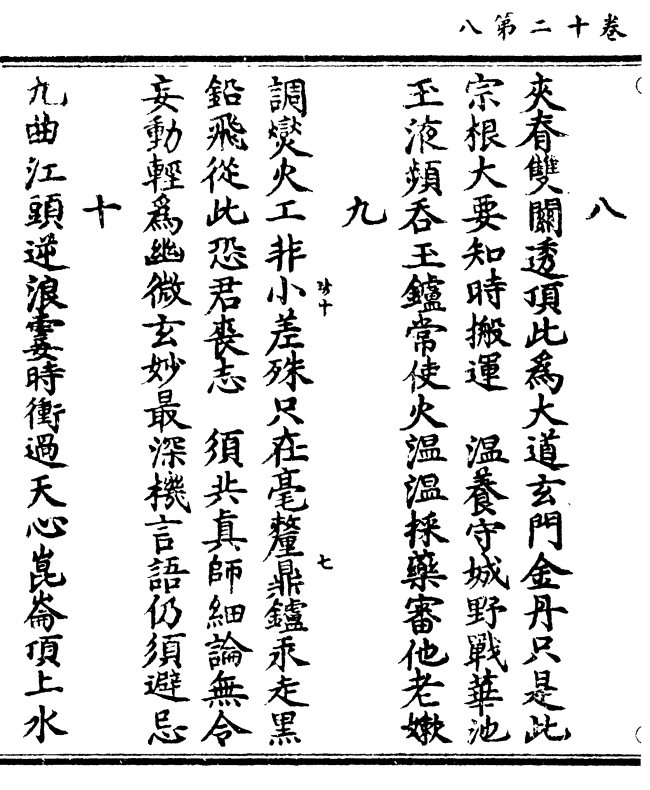 卷十二第八
八
夾脊雙關透頂此爲大道玄門金丹只是此
宗根大要知時搬運　溫養守城野戰華池
玉液頻吞玉鑪常使火溫溫採藥審他老嫩
九
調燮火工非小差殊只在毫釐鼎鑪汞走黑
鉛飛從此恐君喪志　須共真師細論無令
妄動輕爲幽微玄妙最深機言語仍須避忌
十
九曲江頭逆浪霎時衝過天心崑崙頂上水
十
七